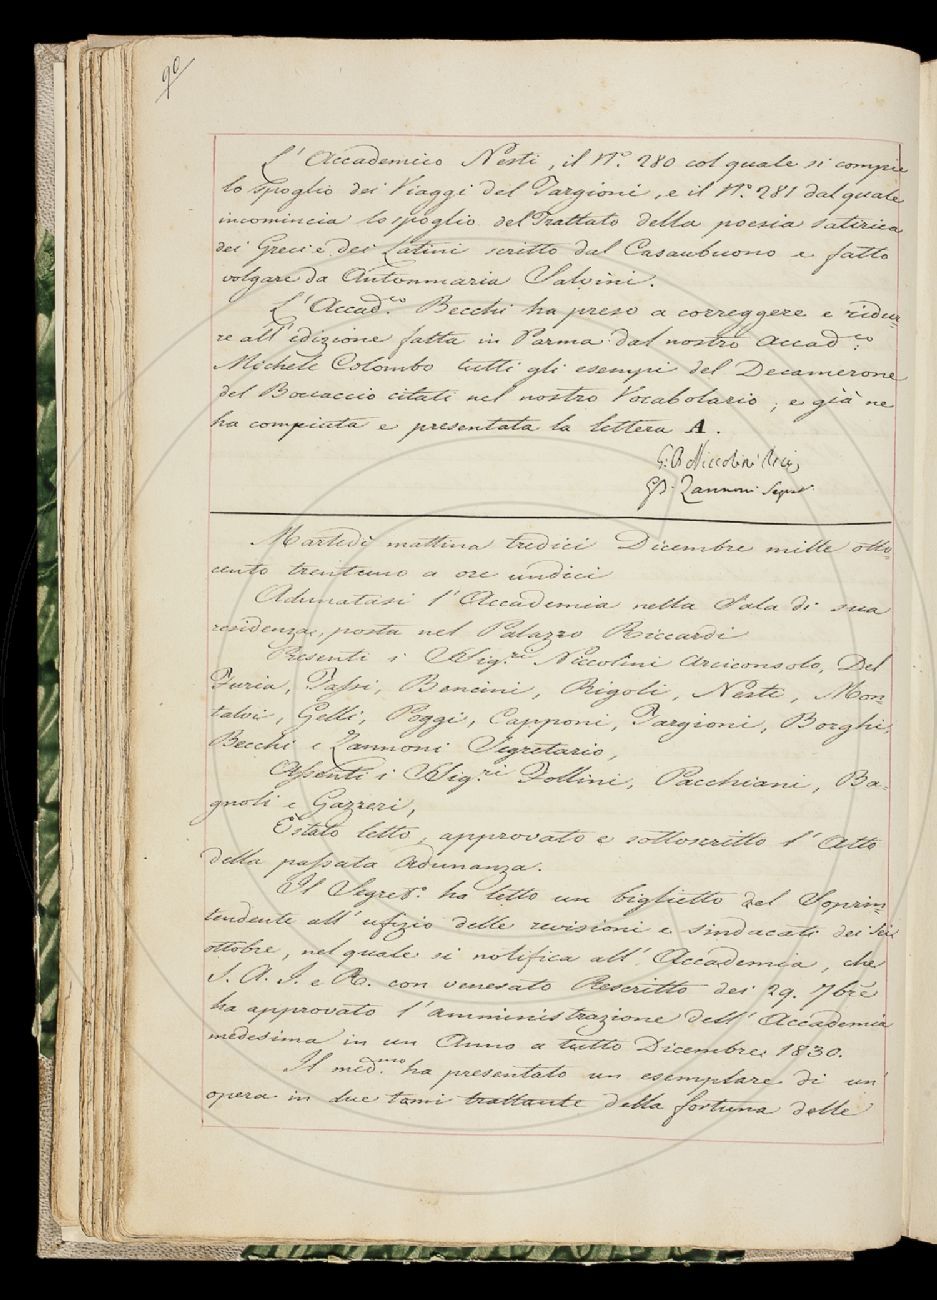 90
L' Accademico Nesti, il N.° 280 col quale si compie
lo spoglio dei Viaggi del Targioni, e il N.° 281 dal quale
incomincia lo spoglio del Trattato della poesia satirica
dei Greci e dei Latini scritto dal Casaubuono e fatto
volgare da Antonmaria Salvini.
L' Accad.co Becchi ha preso a correggere e ridur-
re all' edizione fatta in Parma dal nostro Accad.co
Michele Colombo tutti gli esempi del Decamerone
del Boccaccio citati nel nostro Vocabolario; e già ne
ha compiuta e presentata la lettera A.
G. B. Niccolini Arci.
G. B. Zannoni Segret.
Martedì mattina tredici Dicembre mille otto-
cento trentuno a ore undici
Adunatasi l' Accademia nella Sala di sua
residenza, posta nel Palazzo Riccardi
Presenti i SSig.ri Niccolini Arciconsolo, Del
Furia, Tassi, Bencini, Rigoli, Nesti, Mon-
talvi, Gelli, Poggi, Capponi, Targioni, Borghi,
Becchi e Zannoni Segretario,
Assenti i SSig.ri Follini, Pacchiani, Ba-
gnoli e Gazzeri,
È stato letto, approvato e sottoscritto l' Atto
della passata Adunanza.
Il Segret.° ha letto un biglietto del Soprin-
tendente all' ufizio delle revisioni e sindacati dei sei
ottobre, nel quale si notifica all' Accademia, che
S. A. I. e R. con venerato Rescritto dei 29. 7bre
ha approvato l' amministrazione dell' Accademia
medesima in un Anno a tutto Dicembre 1830.
Il med.mo ha presentato un esemplare di un'
opera in due tomi trattante della fortuna delle